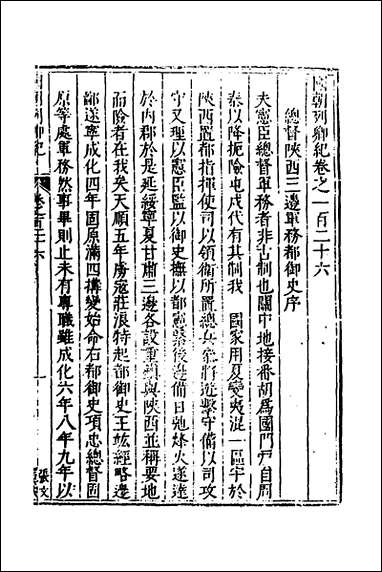 國朝列卿紀卷之一百二十六
總督陝西三邊軍務都御史序
夫憲臣總督軍務者非古制也關中地接番胡為國門戶自周
秦以降扼險屯戍代有其制我 國家用夏變夷混一區宇於
陝西置都指揮使司以領衛所爵總兵參將遊擊守備以司攻
守又理以憲臣監以御史撫以都憲幕後邊備日弛烽火遂達
於內郡於是延綏寧夏甘肅三邊各設重鎮與陝西並稱要地
而險者在我矣天順五年虜寇莊浪特起都御史王竑經略邊
鄙遂寧成化四年固原滿四搆變始命右都御史項忠總督固
原等處軍務然事畢則止未有專職雖成化六年八年九年以
國朝列卿紀
卷之一百二十六
一
張文